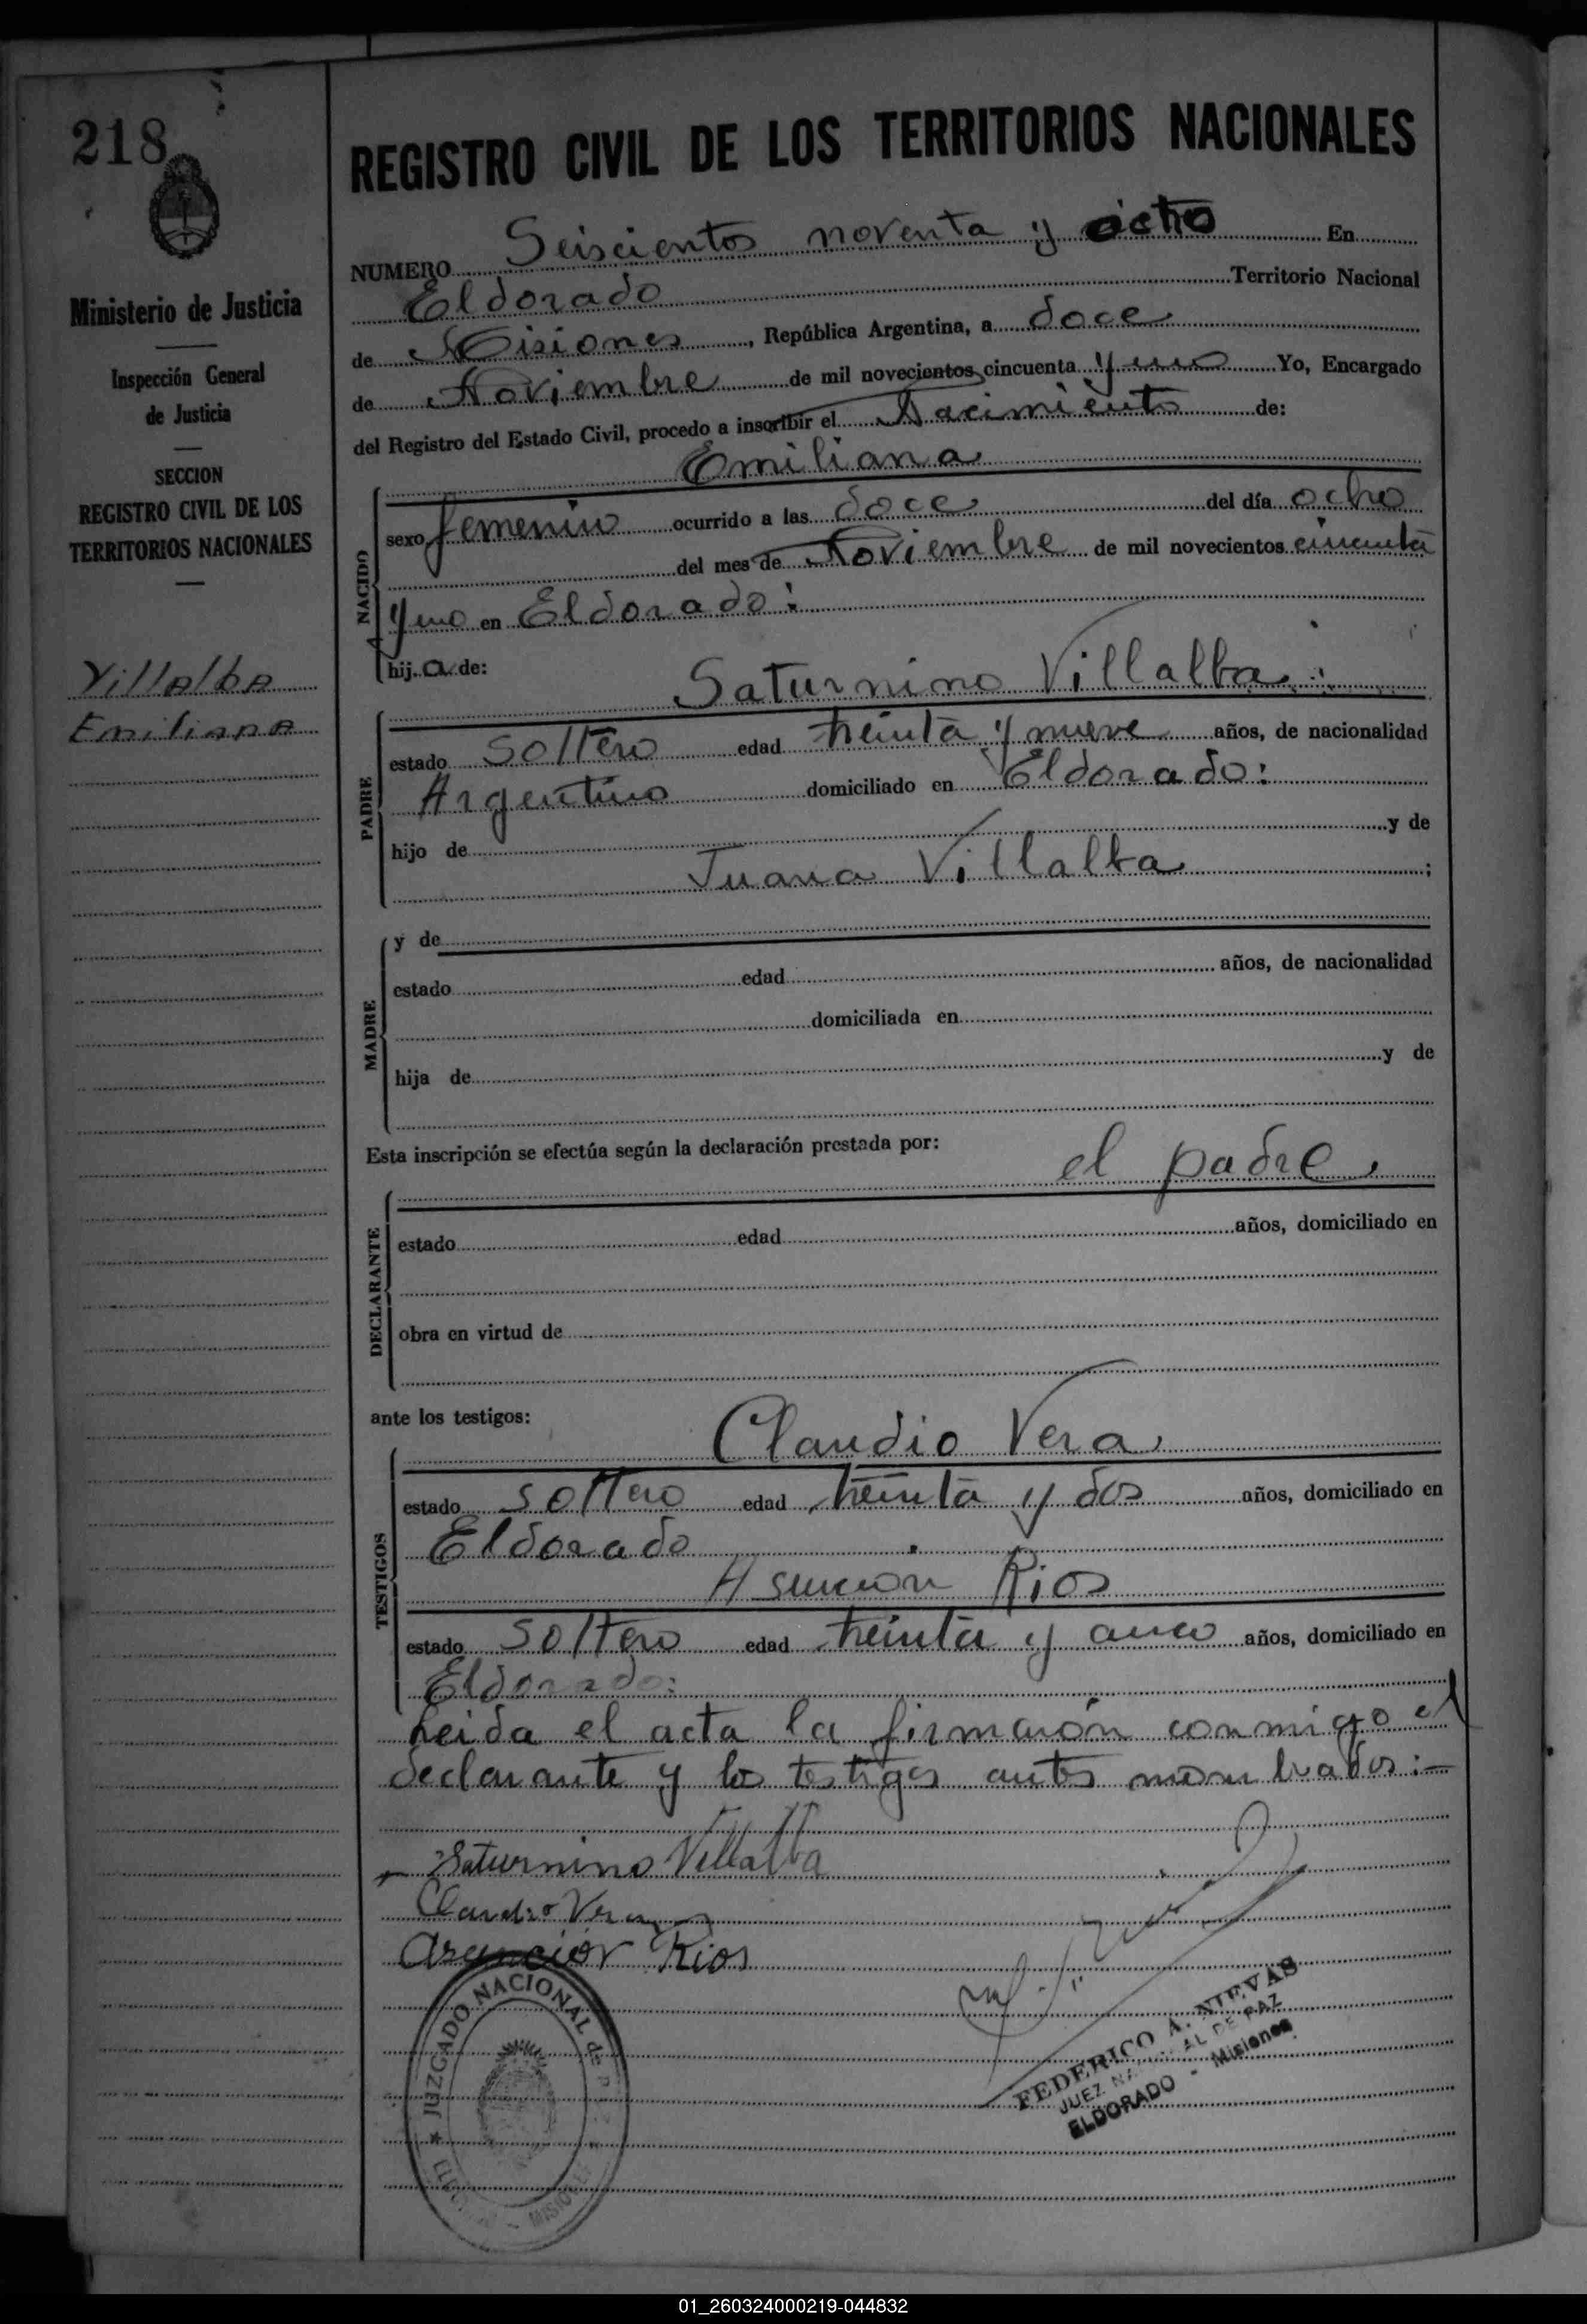 218
Ministerio de Justicia
Inspección General
de Justicia
SECCION
REGISTRO CIVIL DE LOS
TERRITORIOS NACIONALES
Villalba
Emiliana
REGISTRO CIVIL DE LOS TERRITORIOS NACIONALES
NUMERO Seiscientos noventa y ocho En
Eldorado Territorio Nacional
de Misiones, República Argentina, a doce
de Noviembre de mil novecientos cincuenta y uno Yo, Encargado
del Registro del Estado Civil, procedo a inscribir el Nacimiento de:
Emiliana
NACIDO
sexo femenino ocurrido a las doce del día ocho
del mes de Noviembre de mil novecientos cincuenta
y uno en Eldorado:
hij a de:
Saturnino Villalba
PADRE
estado soltero edad treinta y nueve años, de nacionalidad
Argentino domiciliado en Eldorado:
hijo de y de
Juana Villalba ;
MADRE
y de
estado edad años, de nacionalidad
domiciliada en
hija de y de
Esta inscripción se efectúa según la declaración prestada por:
el padre
DECLARANTE
estado edad años, domiciliado en
obra en virtud de
ante los testigos:
Claudio Vera
TESTIGOS
estado soltero edad treinta y dos años, domiciliado en
Eldorado
Asuncion Rios
estado soltero edad treinta y cinco años, domiciliado en
Eldorado:
Leida el acta la firmarón conmigo el
declarante y los testigos antes nombrados:-
Saturnino Villalba
Claudio Vera
Asuncion Rios
JUZGADO NACIONAL de
MISIONES
FEDERICO A. NIEVAS
JUEZ NACIONAL DE PAZ
ELDORADO - Misiones
01_260324000219-044832